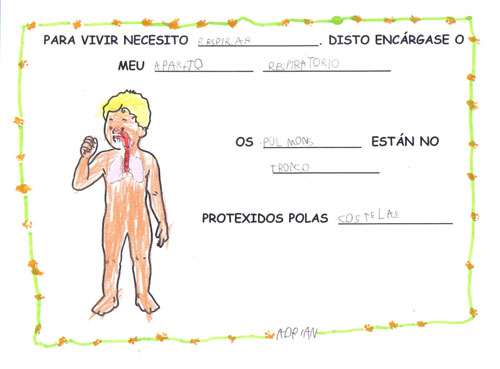 PARA VIVIR NECESITO RESPIRAR. DISTO ENCÁRGASE O
MEU APARATO RESPIRATORIO
OS PULMONS ESTÁN NO
TRONCO
PROTEXIDOS POLAS COSTELAS
ADRIAN